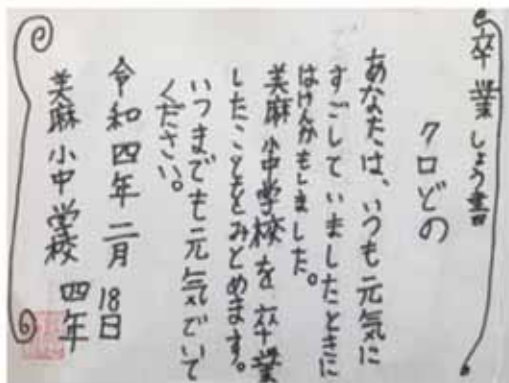 卒業しょう書
クロどの
あなたは、いつも元気に
すごしていましたときに
はけんかもしました。
美麻小中学校を卒業
したことをみとめます。
いつまでも元気でいて
ください。
令和四年二月
18日
美麻小中学校 四年